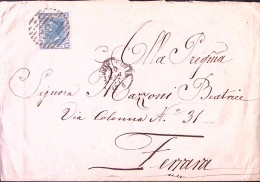 Alla Pregma
Signora Mazzoni Beatrice
Via Colonna N.º 31
Ferrara